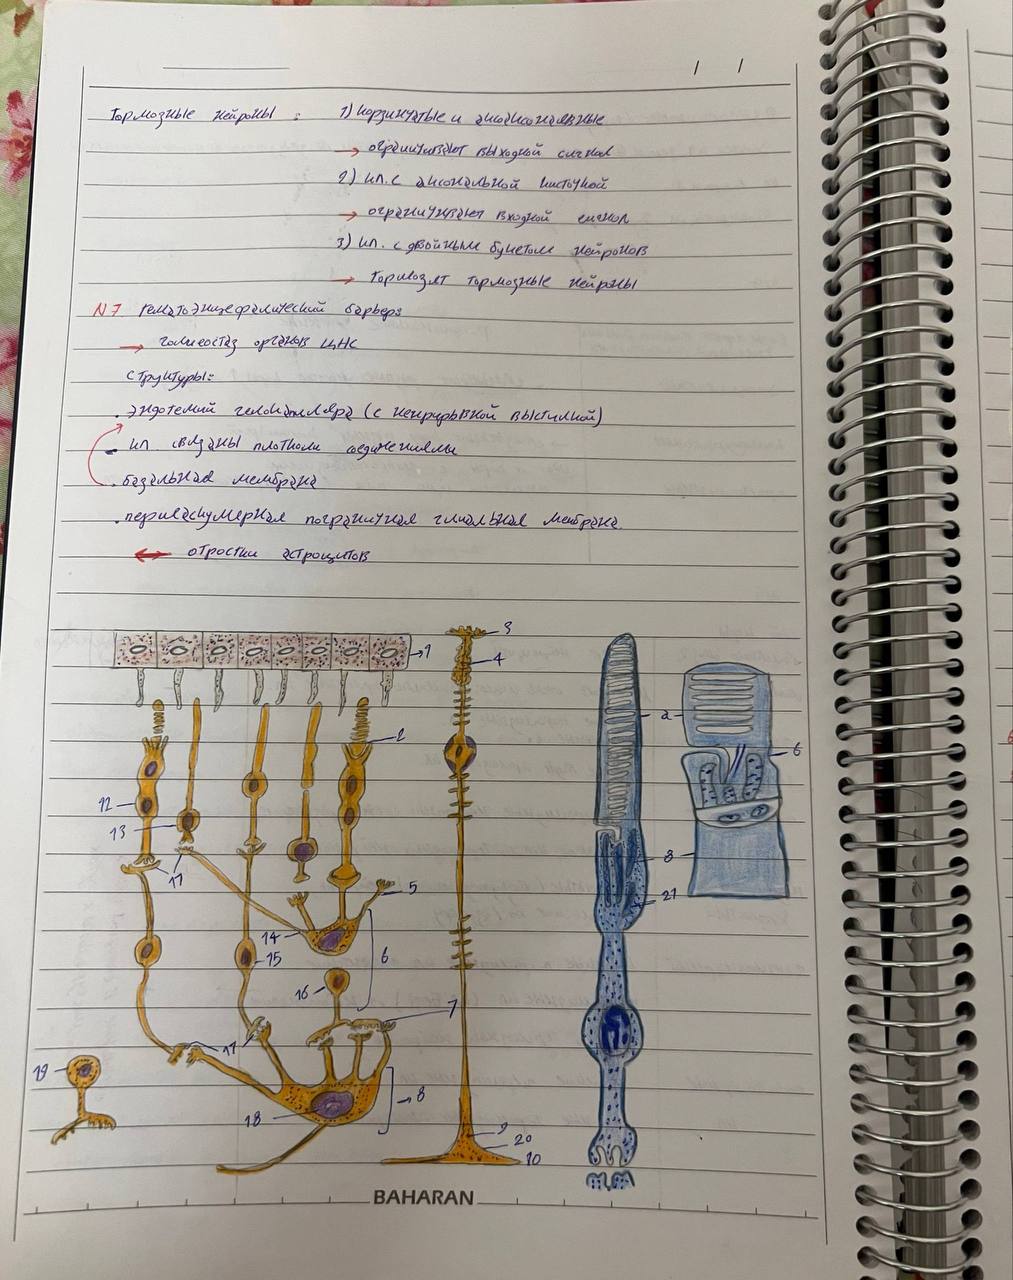 Тормозные нейроны : 1) корзинчатые и аксоаксональные
→ ограничивают выходной сигнал
2) кл. с аксональной кисточкой
→ ограничивают входной сигнал
3) кл. с двойным букетом нейронов
→ тормозят тормозные нейроны
N7 Гематоэнцефалический барьер:
→ гомеостаз органов ЦНС
структуры:
. эндотелий гемокапилляра (с непрерывной выстилкой)
- кл. связаны плотными соединениями
. базальная мембрана
. периваскулярная пограничная глиальная мембрана
отростки астроцитов
1
3
4
2
2
6
12
13
17
8
21
5
14
15
6
16
7
17
19
8
18
9
20
10
BAHARAN